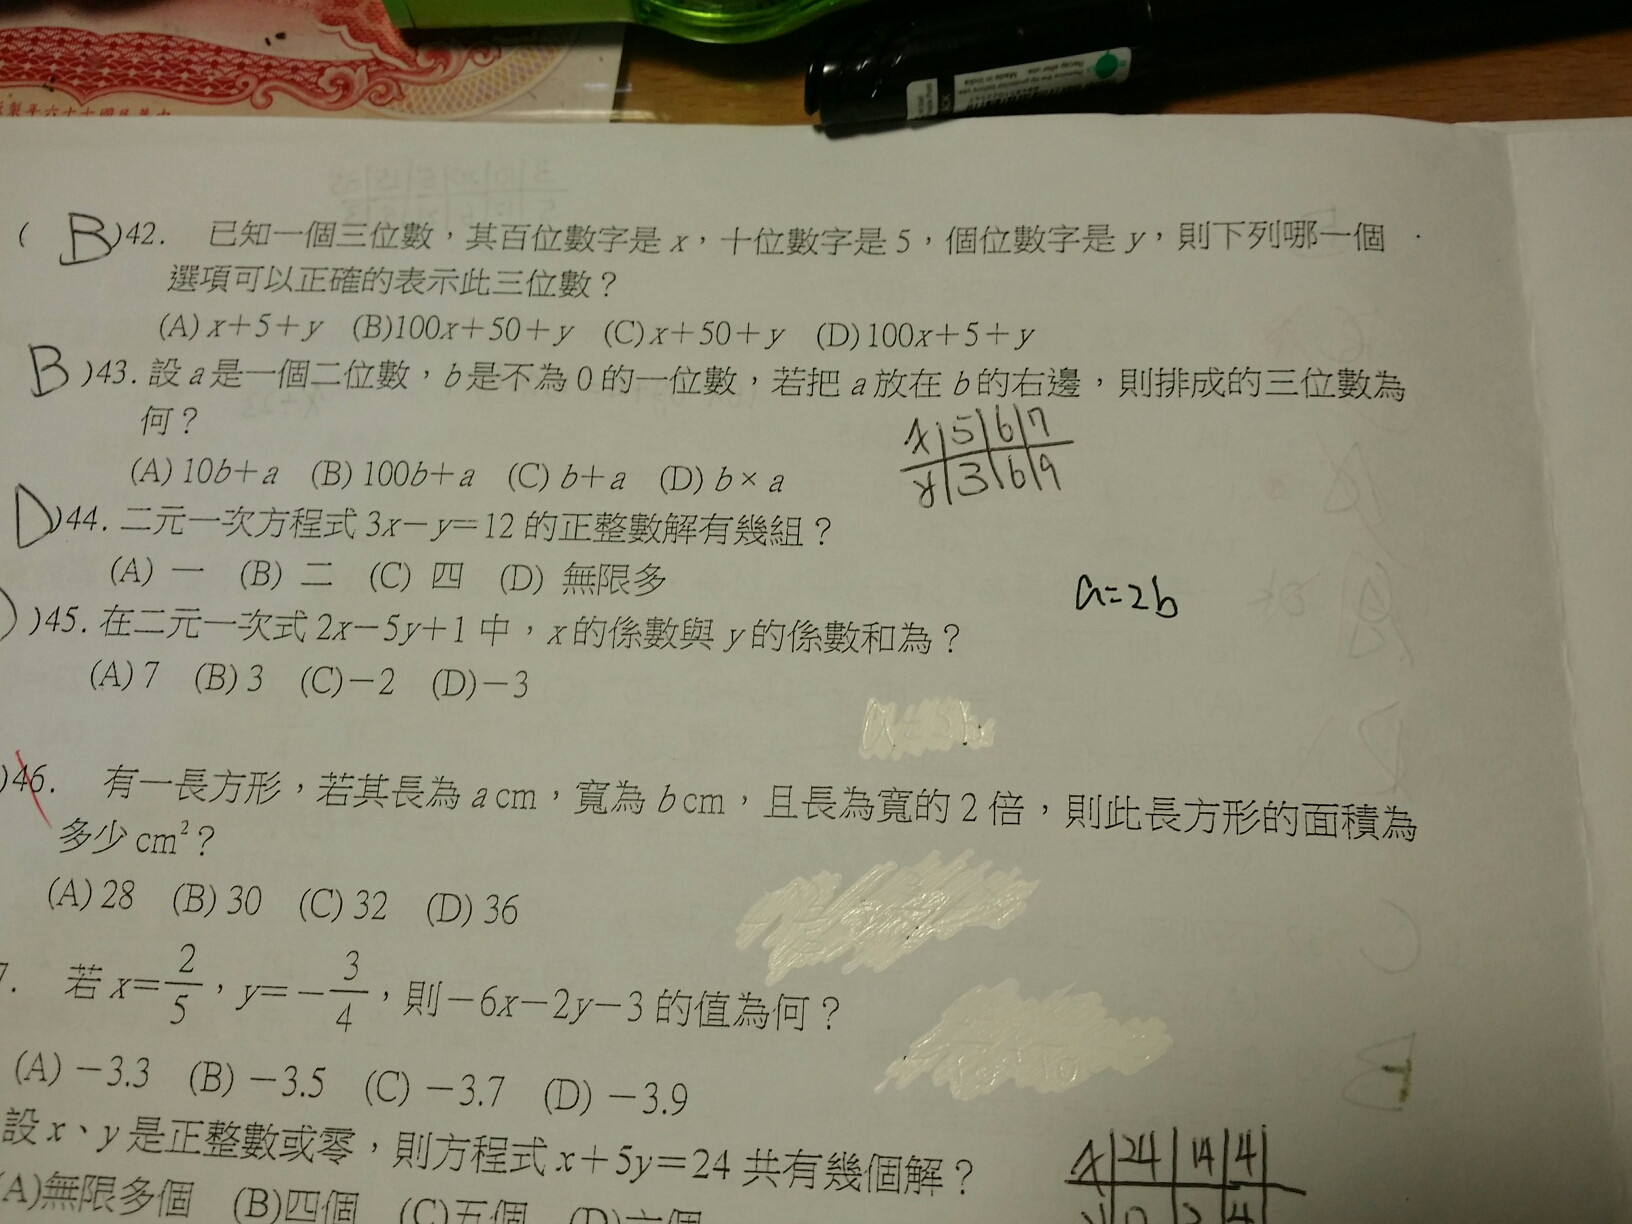 ( B )42. 已知一個三位數，其百位數字是 x，十位數字是 5，個位數字是 y，則下列哪一個
選項可以正確的表示此三位數？
(A) x＋5＋y (B)100x＋50＋y (C)x＋50＋y (D)100x＋5＋y
B )43. 設 a 是一個二位數，b 是不為 0 的一位數，若把 a 放在 b 的右邊，則排成的三位數為
何？
x 5 6 7
y 3 6 9
(A) 10b＋a (B) 100b＋a (C) b＋a (D) b × a
D )44. 二元一次方程式 3x－y＝12 的正整數解有幾組？
(A) 一 (B) 二 (C) 四 (D) 無限多
a=2b
)45. 在二元一次式 2x－5y＋1 中，x 的係數與 y 的係數和為？
(A) 7 (B) 3 (C)－2 (D)－3
)46. 有一長方形，若其長為 a cm，寬為 b cm，且長為寬的 2 倍，則此長方形的面積為
多少 cm²？
(A) 28 (B) 30 (C) 32 (D) 36
7. 若 x＝2/5，y＝－3/4，則－6x－2y－3 的值為何？
(A) －3.3 (B) －3.5 (C) －3.7 (D) －3.9
設 x、y 是正整數或零，則方程式 x＋5y＝24 共有幾個解？
x 24 14 4
(A)無限多個 (B)四個 (C)五個 (D)六個